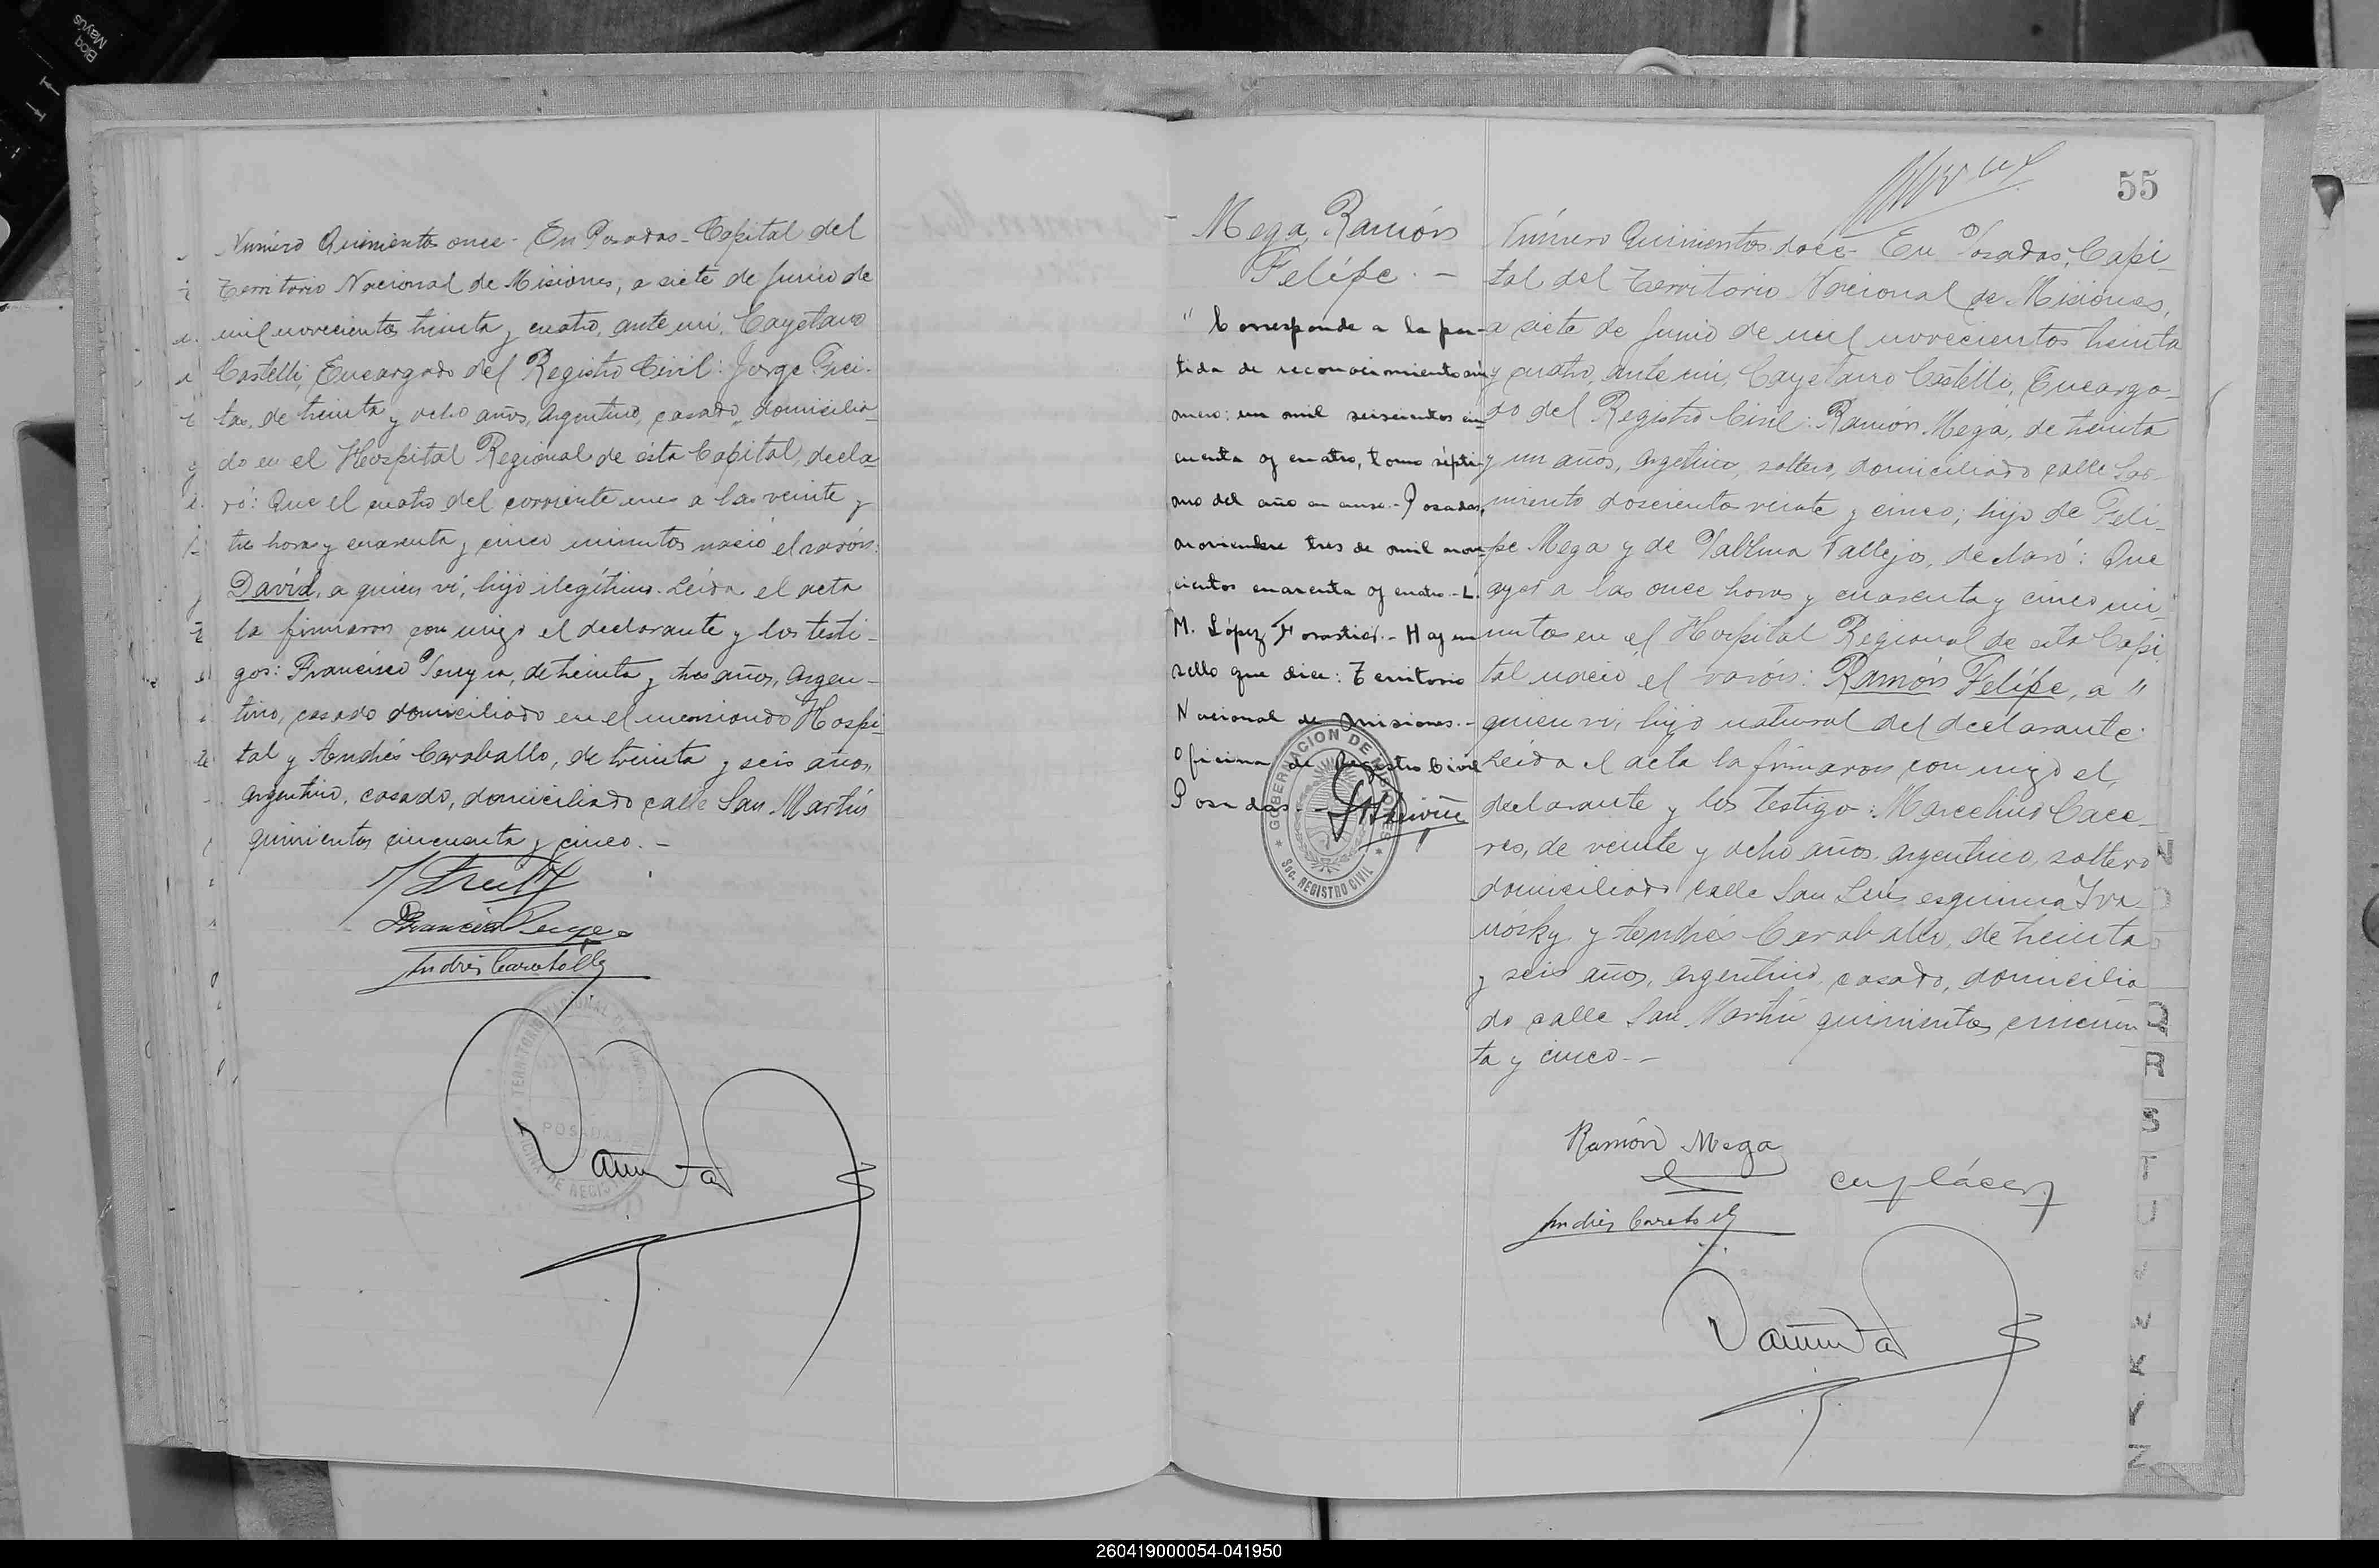 Número Quinientos once - En Posadas - Capital del
Territorio Nacional de Misiones, a siete de Junio de
mil novecientos treinta y cuatro, ante mi, Cayetano
Castelli, Encargado del Registro Civil: Jorge Frei-
tas, de treinta y ocho años, argentino, casado, domicilia-
do en el Hospital Regional de ésta Capital, decla-
ró: Que el cuatro del corriente mes a las veinte y
tres horas y cuarenta y cinco minutos nació el varón:
David, a quien vi, hijo ilegítimo. Leída el acta
la firmaron con migo el declarante y los testi-
gos: Francisco de treinta y tres años, argen-
tino, casado domiciliado en el mensionado Hospi-
tal y Andrés Caraballo, de treinta y seis años,
argentino, casado, domiciliado calle San Martín
quinientos cincuenta y cinco. -
Andrés Caraballo
TERRITORIO NACIONAL
POSADAS
55
Mega, Ramón
Felípe. -
" Corresponde a la par-
tida de reconocimiento nú-
mero: un mil seiscientos cin-
cuenta y cuatro, tomo sépti-
mo del año en curso. - Posadas,
noviembre tres de mil nove-
cientos cuarenta y cuatro. - L.
M. López - Hay un
sello que dice: Territorio
Nacional de Misiones. -
Oficina de Registro Civil
Posadas. -
GOBERNACION DE MISIONES
Sec. REGISTRO CIVIL
Número Quinientos doce - En Posadas, Capi-
tal del Territorio Nacional de Misiones,
a siete de Junio de mil novecientos treinta
y cuatro, ante mi, Cayetano Castelli, Encarga-
do del Registro Civil: Ramón Mega, de treinta
y un años, argentino, soltero, domiciliado calle Sar-
miento doscientos veinte y cinco; hijo de Feli-
pe Mega y de Vallejos, declaró: Que
ayer a las once horas y cuarenta y cinco mi-
nutos en el Hospital Regional de esta Capi-
tal nació el varón: Ramón Felípe, a "
quien vi, hijo natural del declarante.
Leída el acta la firmaron con migo el
declarante y los testigo: Marcelino Cace-
res, de veinte y ocho años, argentino, soltero
domiciliado calle San Luis esquina Iva-
nósky y Andrés Caraballo, de treinta
y seis años, argentino, casado, domicilia
do calle San Martín quinientos cincuen-
ta y cinco. -
Ramón Mega
Andrés Caraballo
N
Q
R
S
T
U
X
Y
Z
260419000054-041950